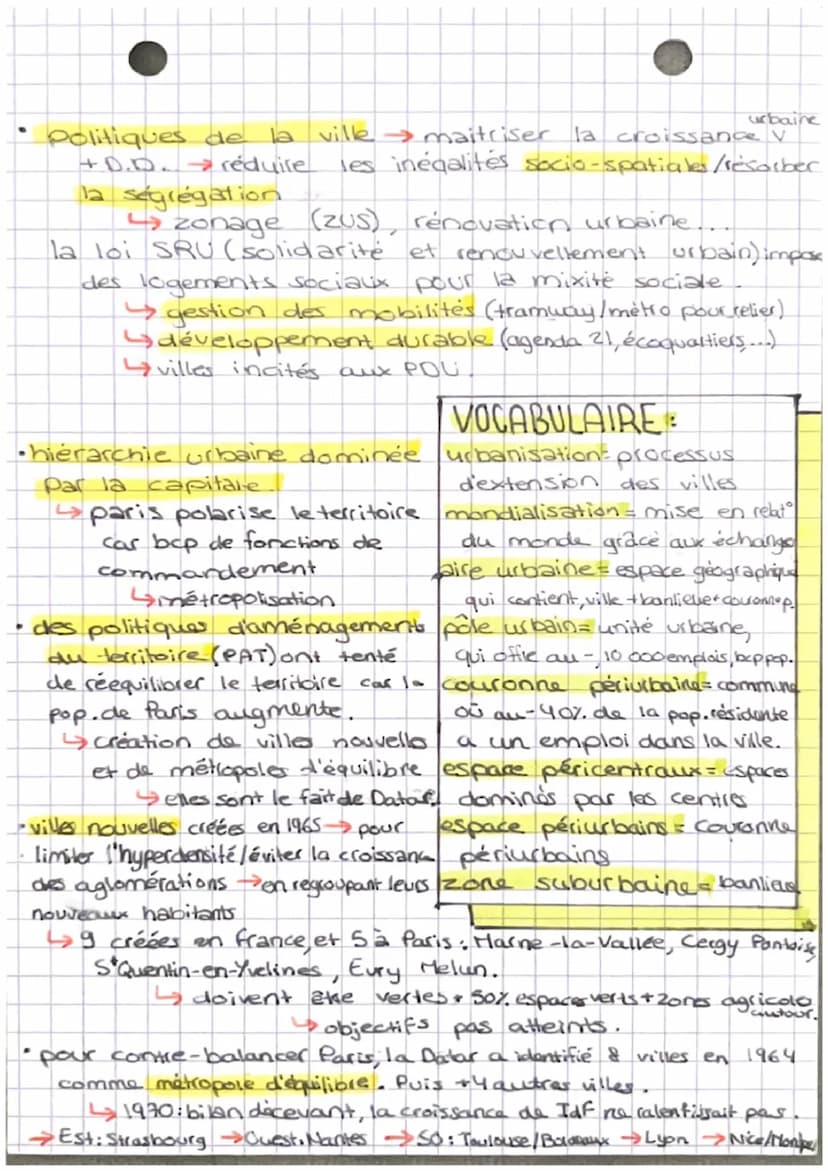 • politiques de la ville → maitriser la croissance v urbaine
+ D.D. → réduire les inégalités socio-spatiales / résorber
la ségrégation
↳ zonage (ZUS), rénovation urbaine...
la loi SRU (solidarité et renouvellement urbain) impose
des logements sociaux pour la mixité sociale.
↳ gestion des mobilités (tramway/métro pour relier)
↳ développement durable (agenda 21, écoquartiers,...)
↳ villes incités aux PDU.
• hiérarchie urbaine dominée
par la capitale.
↳ paris polarise le territoire
car bcp de fonctions de
commandement
↳ métropolisation
• des politiques d'aménagements
du territoire (PAT) ont tenté
de réequilibrer le territoire car la
pop. de Paris augmente.
↳ création de villes nouvelles
et de métropoles d'équilibre
↳ elles sont le fait de Datar.
• villes nouvelles créées en 1965 → pour
limiter l'hyperdensité/éviter la croissance
des aglomérations → en regroupant leurs
nouveaux habitants
VOCABULAIRE :
urbanisation = processus
d'extension des villes
mondialisation = mise en relat°
du monde grâce aux échange
aire urbaine = espace géographique
qui contient, ville + banlieue + couronne p.
pôle urbain = unité urbaine,
qui offre au -, 10 000 emplois, bcp pop.
couronne périurbaine = commune
où au - 40% de la pop. résidente
a un emploi dans la ville.
espace péricentraux = espaces
dominés par les centres
espace périurbains = couronne
périurbains
zone suburbaine = banlieue
↳ 9 créées en france, et 5 à Paris : Marne-la-Vallée, Cergy Pontoise,
S^t Quentin-en-Yvelines, Evry Melun.
↳ doivent être vertes + 50% espaces verts + zones agricole autour.
↳ objectifs pas atteints.
• pour contre-balancer Paris, la Datar a identifié 8 villes en 1964
comme métropole d'équilibre. Puis +4 autres villes.
↳ 1970 : bilan décevant, la croissance de IdF ne ralentissait pas.
→ Est : Strasbourg → Ouest : Nantes → SO : Toulouse/Bordeaux → Lyon → Nice/